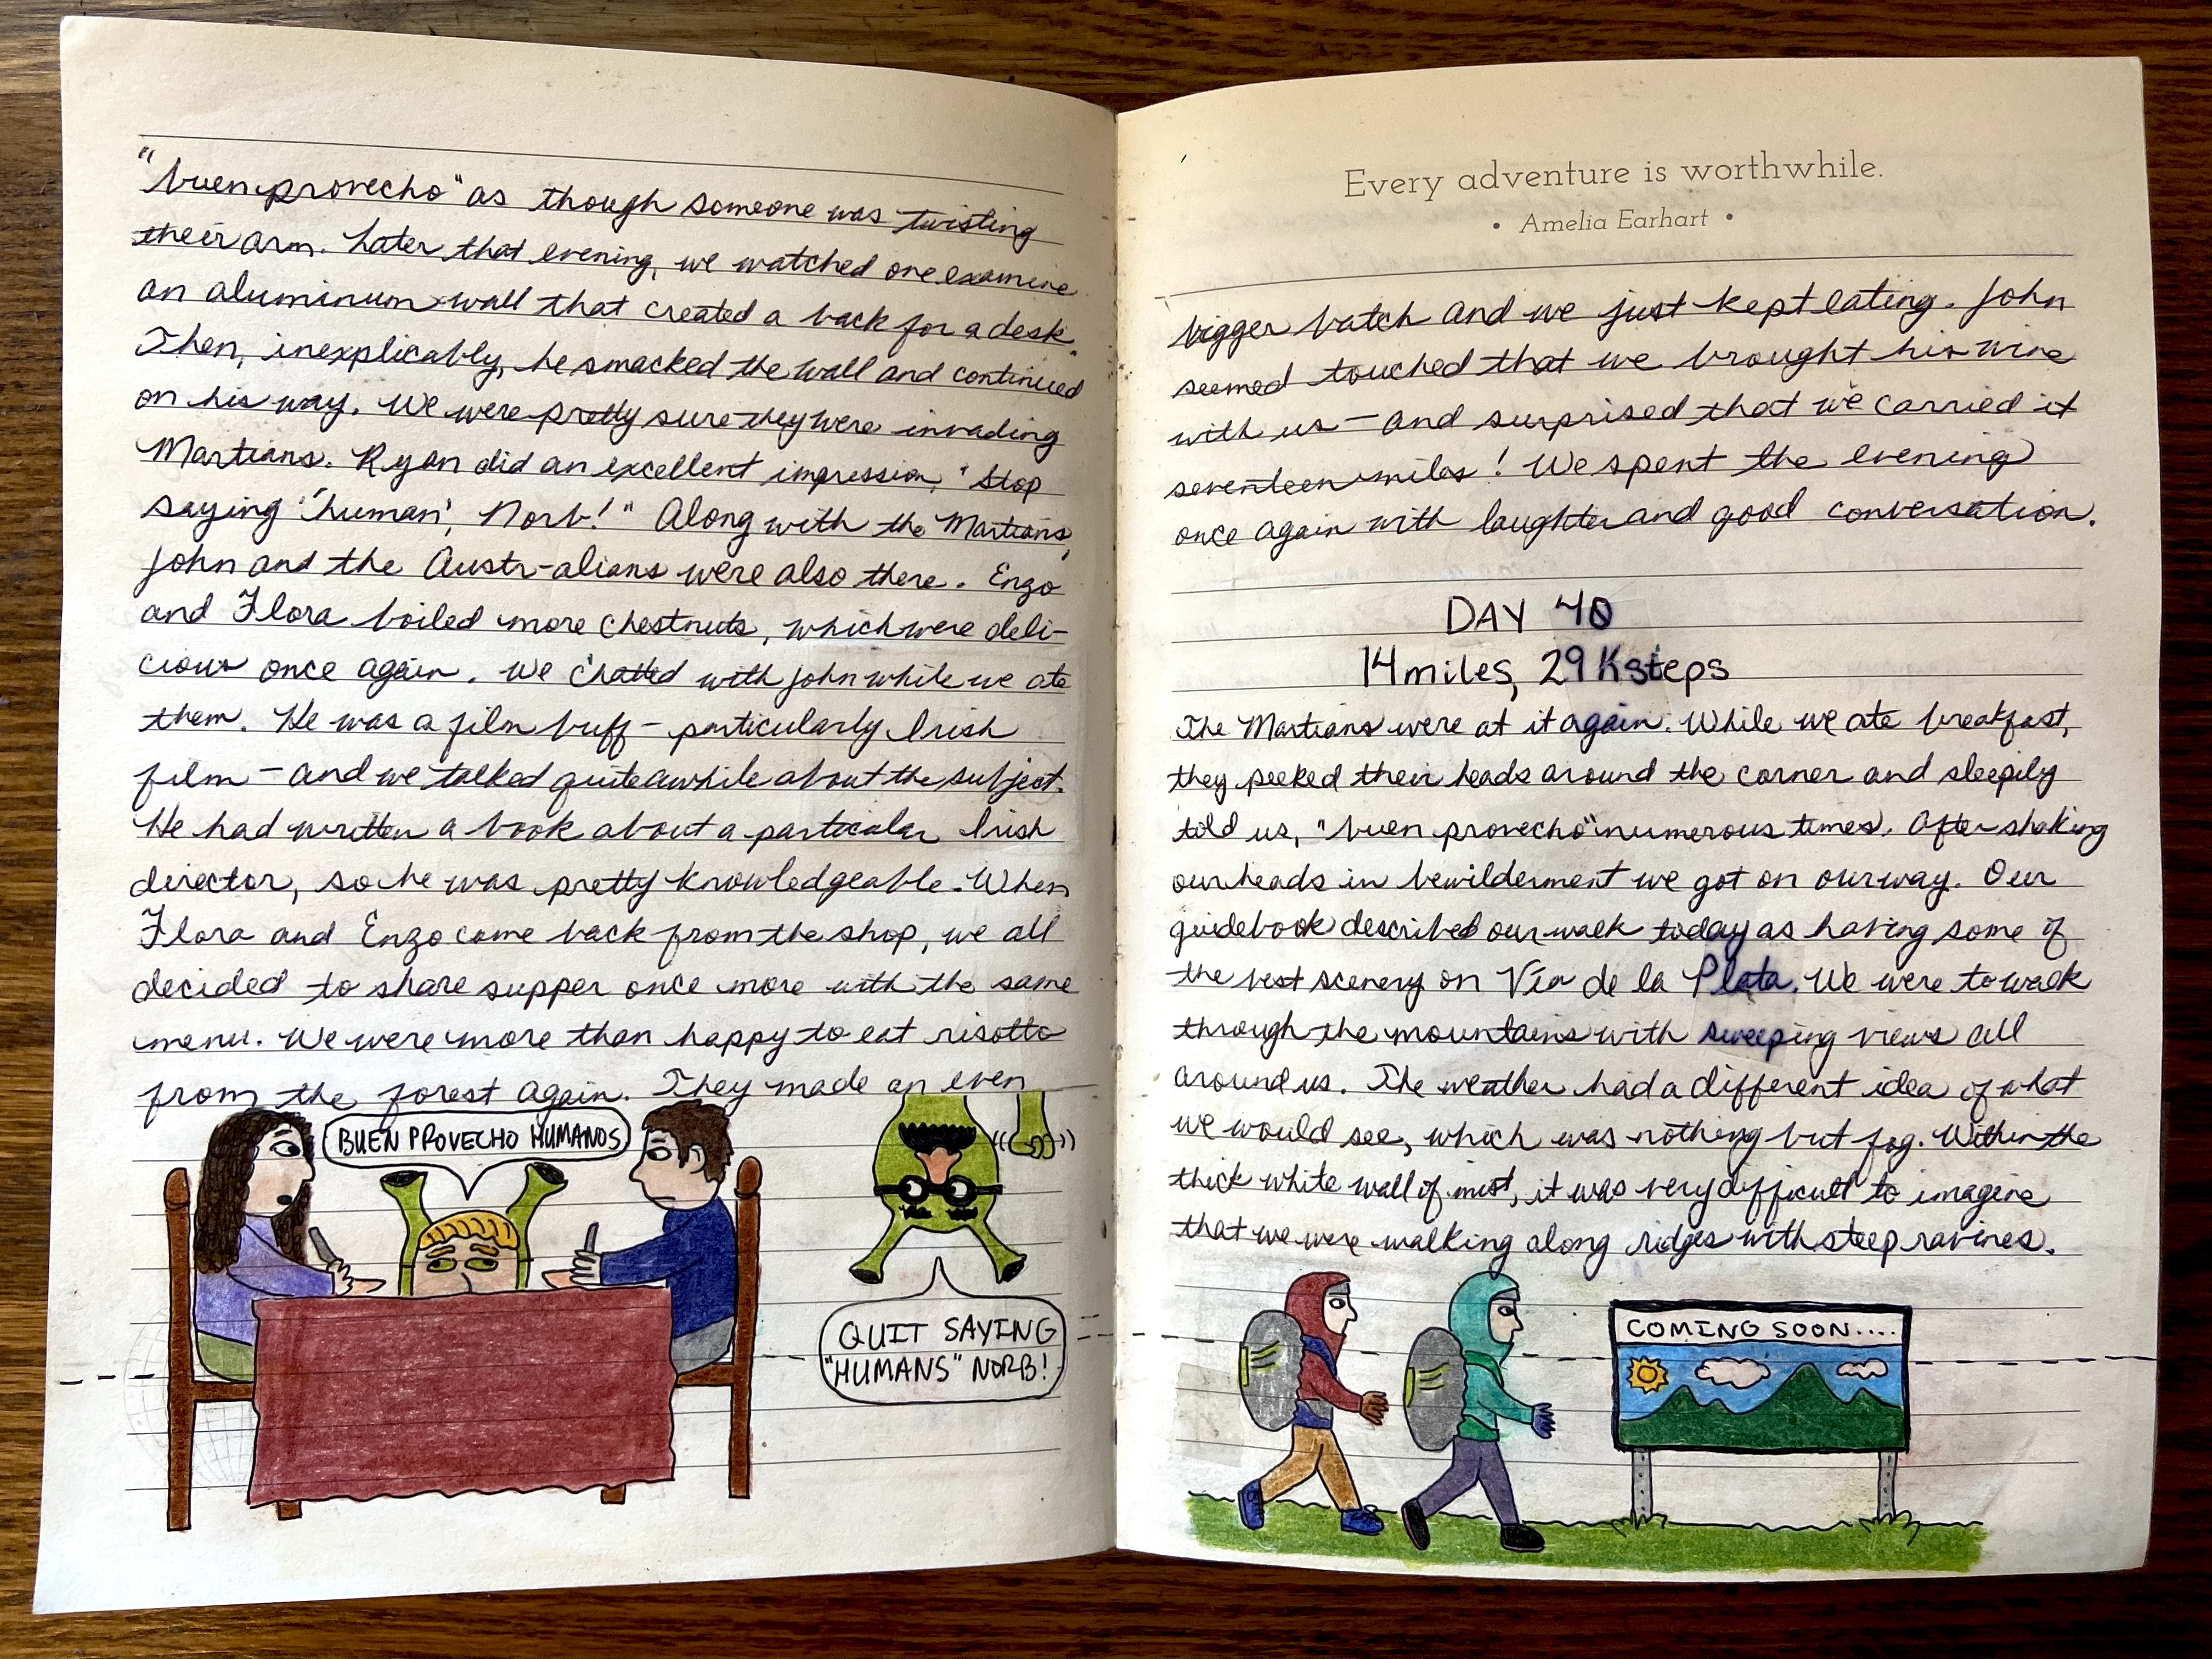 "buen provecho" as though someone was twisting
their arm. Later that evening, we watched one examine
an aluminum wall that created a back for a desk.
Then, inexplicably, he smacked the wall and continued
on his way. We were pretty sure they were invading
Martians. Ryan did an excellent impression, "Stop
saying 'human', Norb!" Along with the Martians,
John and the Austr-alians were also there. Enzo
and Flora boiled more chestnuts, which were deli-
cious once again. We chatted with John while we ate
them. He was a film buff – particularly Irish
film – and we talked quite awhile about the subject.
He had written a book about a particular Irish
director, so he was pretty knowledgeable. When
Flora and Enzo came back from the shop, we all
decided to share supper once more with the same
menu. We were more than happy to eat risotto
from the forest again. They made an even
BUEN PROVECHO HUMANOS
QUIT SAYING
"HUMANS" NORB!
Every adventure is worthwhile.
• Amelia Earhart •
bigger batch and we just kept eating. John
seemed touched that we brought his wine
with us – and surprised that we carried it
seventeen miles! We spent the evening
once again with laughter and good conversation.
DAY 40
14 miles, 29K steps
The Martians were at it again. While we ate breakfast,
they peeked their heads around the corner and sleepily
told us, "buen provecho" numerous times. After shaking
our heads in bewilderment we got on our way. Our
guidebook described our walk today as having some of
the best scenery on Vía de la Plata. We were to walk
through the mountains with sweeping views all
around us. The weather had a different idea of what
we would see, which was nothing but fog. Within the
thick white wall of mist, it was very difficult to imagine
that we were walking along ridges with steep ravines.
COMING SOON....